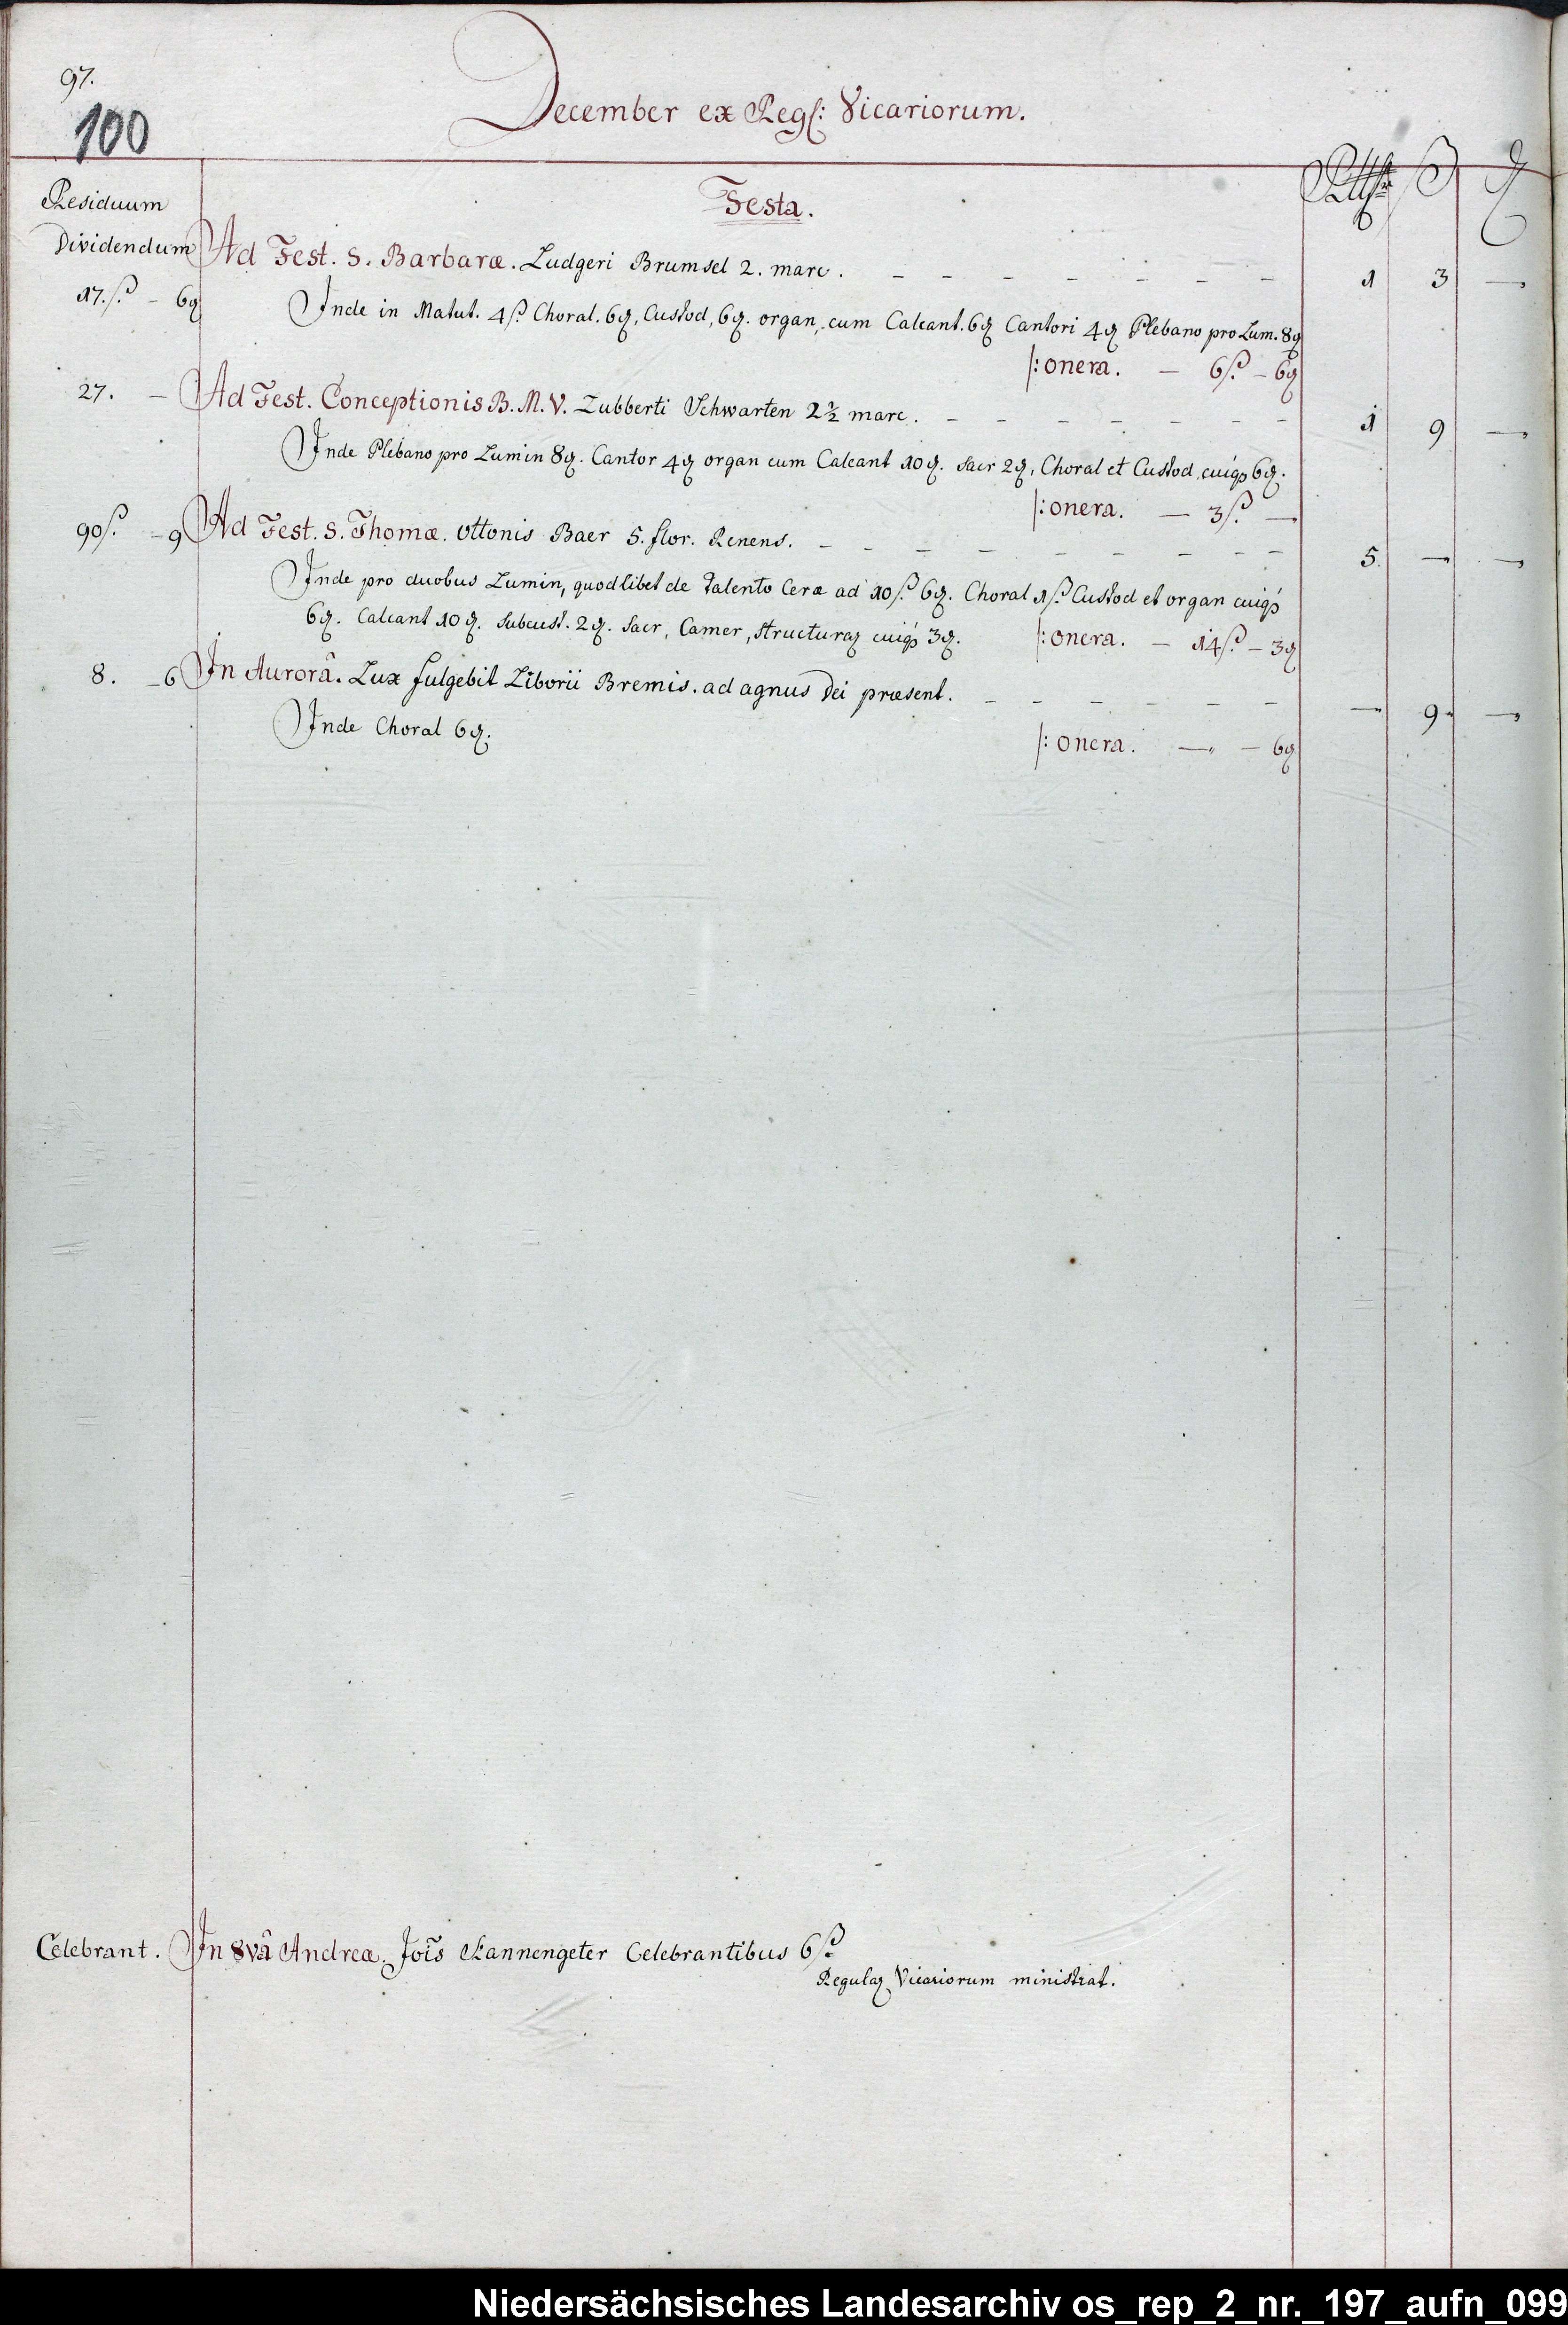 97.
100
December ex Regs: Vicariorum.
Residuum
Dividendum
Festa.
Rthlr ß ₰
Ad Fest. S. Barbaræ. Ludgeri Brumsel 2. marc. - - - - - - - - 1 3 —
17.ß - 6₰ Inde in Matut. 4ß Choral. 6₰, Custod, 6₰. organ, cum Calcant. 6₰ Cantori 4₰ Plebano pro Lum. 8₰
/: onera. — 6ß - 6₰
27. — Ad Fest. Conceptionis B. M. V. Lubberti Schwarten 2½ marc. - - - - - - - 1 9 —
Inde Plebano pro Lumin 8₰. Cantor 4₰ organ cum Calcant 10₰. Sacr 2₰, Choral et Custod, cuiqs 6₰.
/: onera. — 3ß —
90ß. - 9 Ad Fest. S. Thomæ. Ottonis Baer 5. flor. Renens. - - - - - - - - 5. — —
Inde pro duobus Lumin, quodlibet de Talento Ceræ ad 10ß 6₰. Choral 1ß Custod et organ cuiqs
6₰. Calcant 10₰. Subcust. 2₰. Sacr, Camer, Structuraz cuiqs 3₰. /: onera. — 14ß - 3₰
8. - 6 In Aurorâ. Lux fulgebit Liborii Bremis. ad agnus Dei præsent. - - - - - - — 9 —
Inde Choral 6₰. /: onera. — - 6₰
Celebrant. In 8vâ Andreæ. Jois Kannengeter Celebrantibus 6ß
Regulaz Vicariorum ministrat.
Niedersächsisches Landesarchiv os_rep_2_nr._197_aufn_099